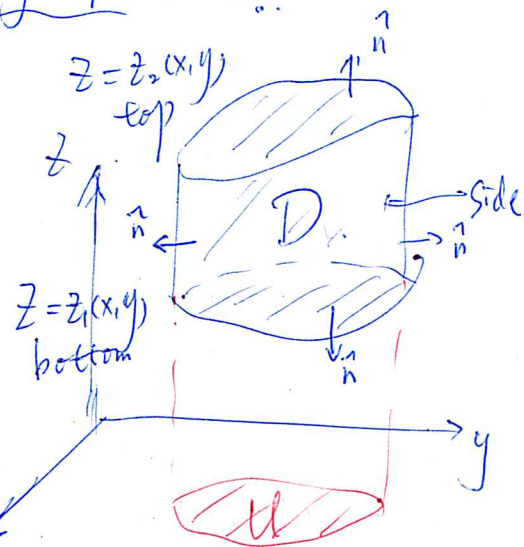 n̂
z = z₂(x,y)
top
z
D
side
n̂
n̂
z = z₁(x,y)
bottom
n̂
y
U